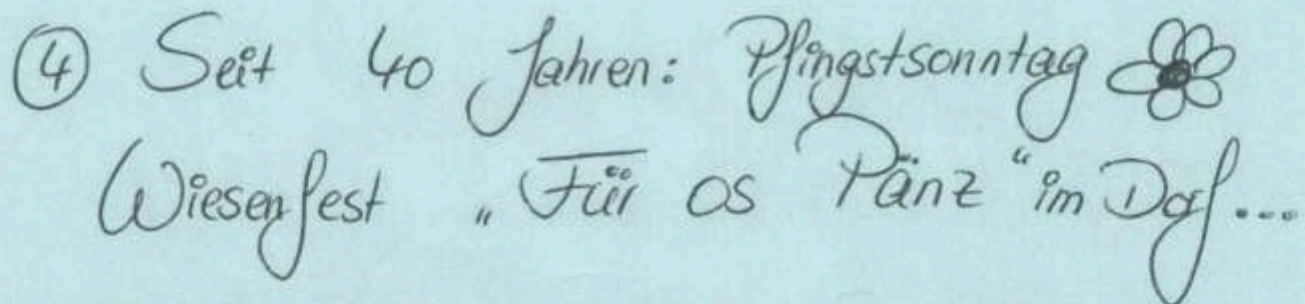 ④ Seit 40 Jahren: Pfingstsonntag
Wiesenfest „Für os Pänz“ im Dorf...